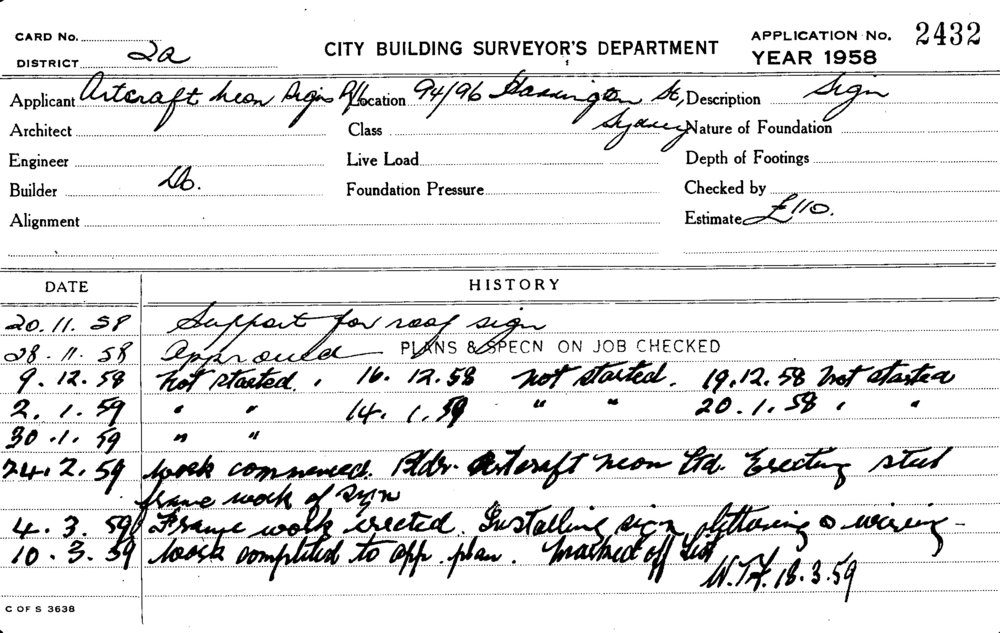 CARD No.
DISTRICT 2a
CITY BUILDING SURVEYOR'S DEPARTMENT
APPLICATION No. 2432
YEAR 1958
Applicant Artcraft Neon Signs P/L Location 94/96 Harrington St, Sydney Description Sign
Architect Class Nature of Foundation
Engineer Live Load Depth of Footings
Builder Do. Foundation Pressure Checked by
Alignment Estimate £110.
DATE HISTORY
20.11.58 Support for roof sign
28.11.58 Approved PLANS & SPECN ON JOB CHECKED
9.12.58 Not started. 16.12.58 Not started. 19.12.58 Not started
2.1.59 " " 14.1.59 " " 20.1.58 " "
30.1.59 " "
24.2.59 Work commenced. Bldr. Artcraft Neon Ltd. Erecting steel
frame work of sign
4.3.59 Frame work erected. Installing sign lettering & wiring -
10.3.59 Work completed to app. plan. Marked off List
W.T.H. 18.3.59
C OF S 3638